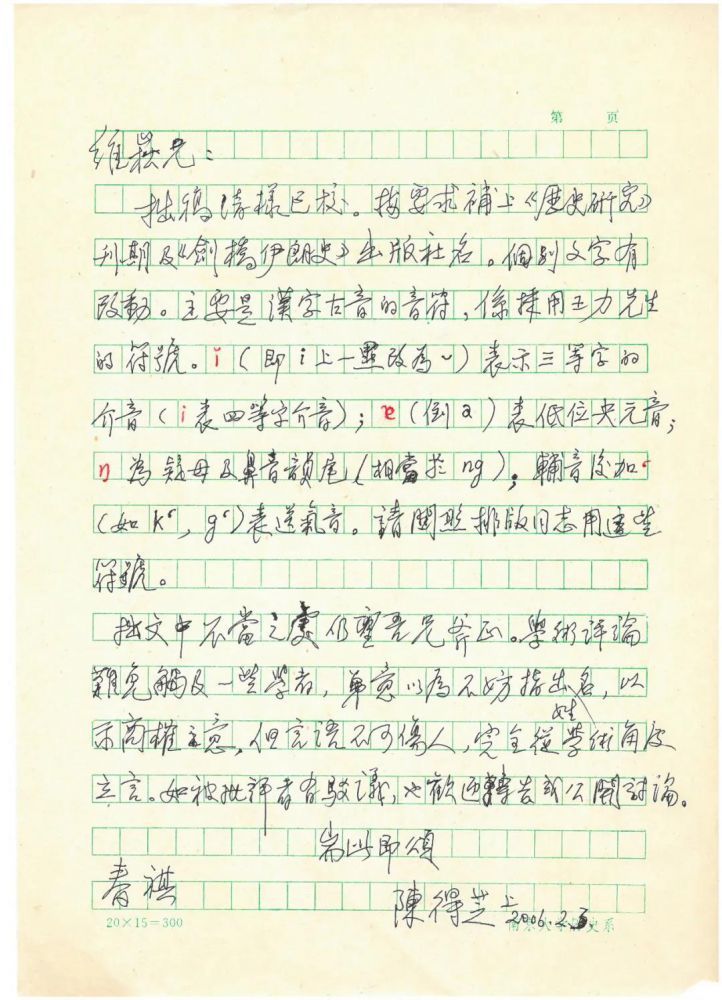 第 页
維 兄：
拙稿清樣已校。按要求補上《歷史研究》
刊期及《劍橋伊朗史》出版社名。個別文字有
改動。主要是漢字古音的音符，係採用王力先生
的符號。ĭ（即i上一點改為˘）表示三等字的
介音（i表四等字介音）；ɐ（倒a）表低位央元音；
ŋ為疑母及鼻音韻尾（相當於ng）；輔音後加ʻ
（如kʻ，gʻ）表送氣音。請關照排版同志用這些
符號。
拙文中不當之處仍望吾兄斧正。學術評論
難免觸及一些學者，鄙意以為不妨指出姓名，以
示商榷主意，但言語不可傷人，完全從學術角度
立言。如被批評者有駁議，也歡迎轉告或公開討論。
耑此即頌
春祺
陳得芝上 2006.2.
20×15=300 南京大学历史系